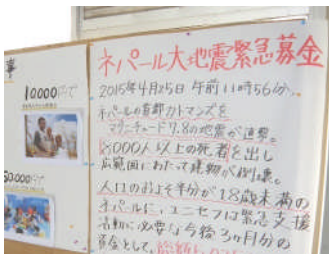 事
10000円で
50000円で
ネパール大地震緊急募金
2015年4月25日 午前11時56分、
ネパールの首都カトマンズを
マグニチュード7.8の地震が直撃。
8000人以上の死者を出し
広範囲にわたって建物が倒壊。
人口のおよそ半分が18歳未満の
ネパールに、ユニセフは緊急支援
活動に必要な今後3ヶ月分の
資金として、